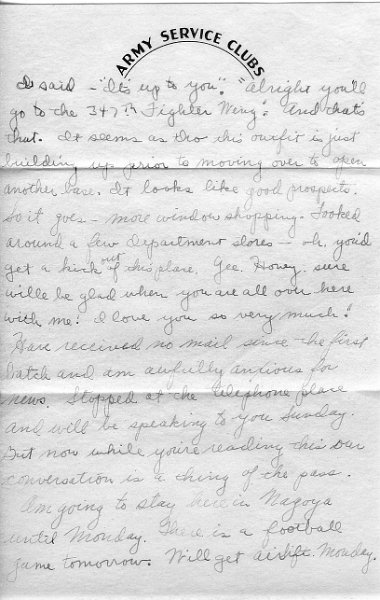 ARMY SERVICE CLUBS
I said - "It's up to you". "Alright you'll
go to the 347th Fighter Wing". And that's
that. It seems as tho this outfit is just
building up prior to moving over to open
another base. It looks like good prospects.
So it goes - more window shopping. Looked
around a few department stores - oh, you'd
get a kick out of this place. Gee, Honey, sure
will be glad when you are all over here
with me! I love you so very much!
Have received no mail since the first
batch and am awfully anxious for
news. Stopped at the telephone place
and will be speaking to you Sunday.
But now while you're reading this our
conversation is a thing of the pass.
Am going to stay here in Nagoya
until Monday. There is a football
game tomorrow. Will get airlift Monday.